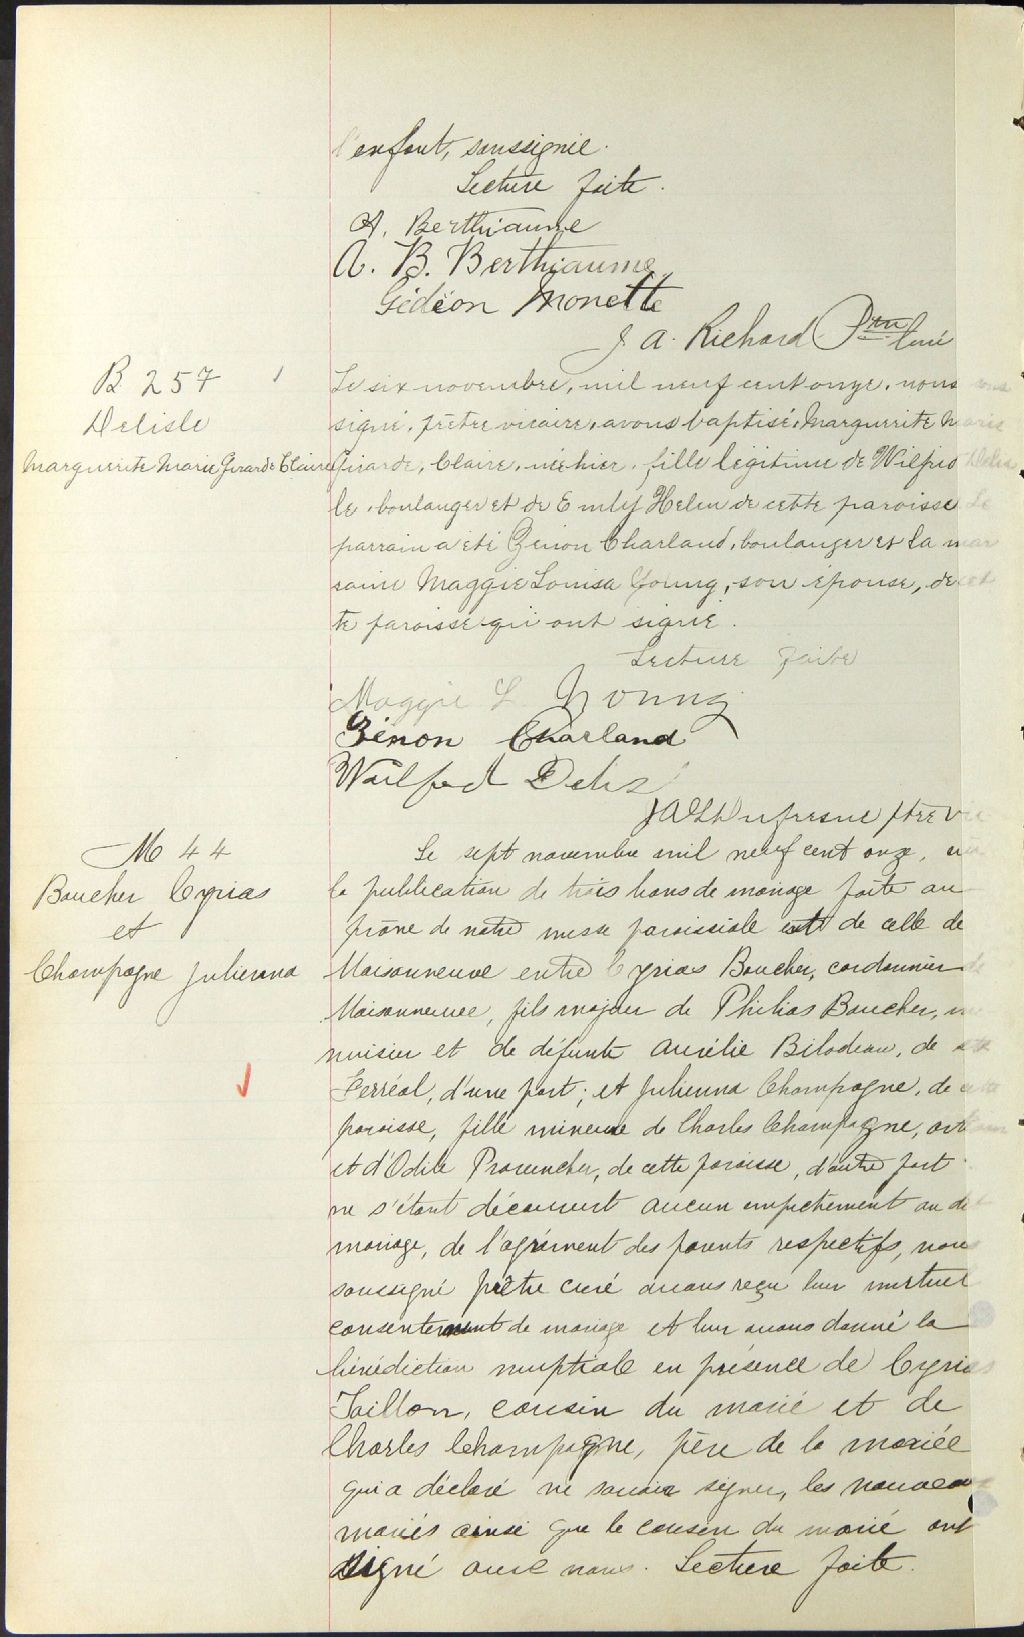 l'enfant, soussignée.
Lecture faite.
A. Berthiaume
A. B. Berthiaume
Gédéon Monette
J. A. Richard Ptre Curé
B 257
Delisle
Marguerite Marie Girarde Claire
Le six novembre, mil neuf cent onze, nous sous
signé, prêtre vicaire, avons baptisé, Marguerite Marie
Girarde, Claire, née hier, fille légitime de Wilfrid Delis
le, boulanger et de Emily Helen de cette paroisse Le
parrain a été Zénon Charland, boulanger et la mar
raine Maggie Louisa Young, son épouse, de cet
te paroisse qui ont signé.
Lecture faite
Maggie L. Young
Zénon Charland
Wilfred Delis
JALDufresne ptre vic
M 44
Boucher Cyrias
et
Champagne Julienna
Le sept novembre mil neuf cent onze, vu
la publication de trois bans de mariage faite au
prône de notre messe paroissiale et de celle de
Maisonneuve entre Cyrias Boucher, cordonnier de
Maisonneuve, fils majeur de Philias Boucher, me
nuisier et de défunte Aurélie Bilodeau, de
Ferréol, d'une part; et Julienna Champagne, de cette
paroisse, fille mineure de Charles Champagne,
et d'Odile Provencher, de cette paroisse, d'autre part
ne s'étant découvert aucun empêchement au dit
mariage, de l'agrément des parents respectifs, nous
soussigné prêtre curé avons reçu leur mutuel
consentement de mariage et leur avons donné la
bénédiction nuptiale en présence de Cyrias
Taillon, cousin du marié et de
Charles Champagne, père de la mariée
qui a déclaré ne savoir signer, les nouveaux
mariés ainsi que le cousin du marié ont
signé avec nous. Lecture faite.